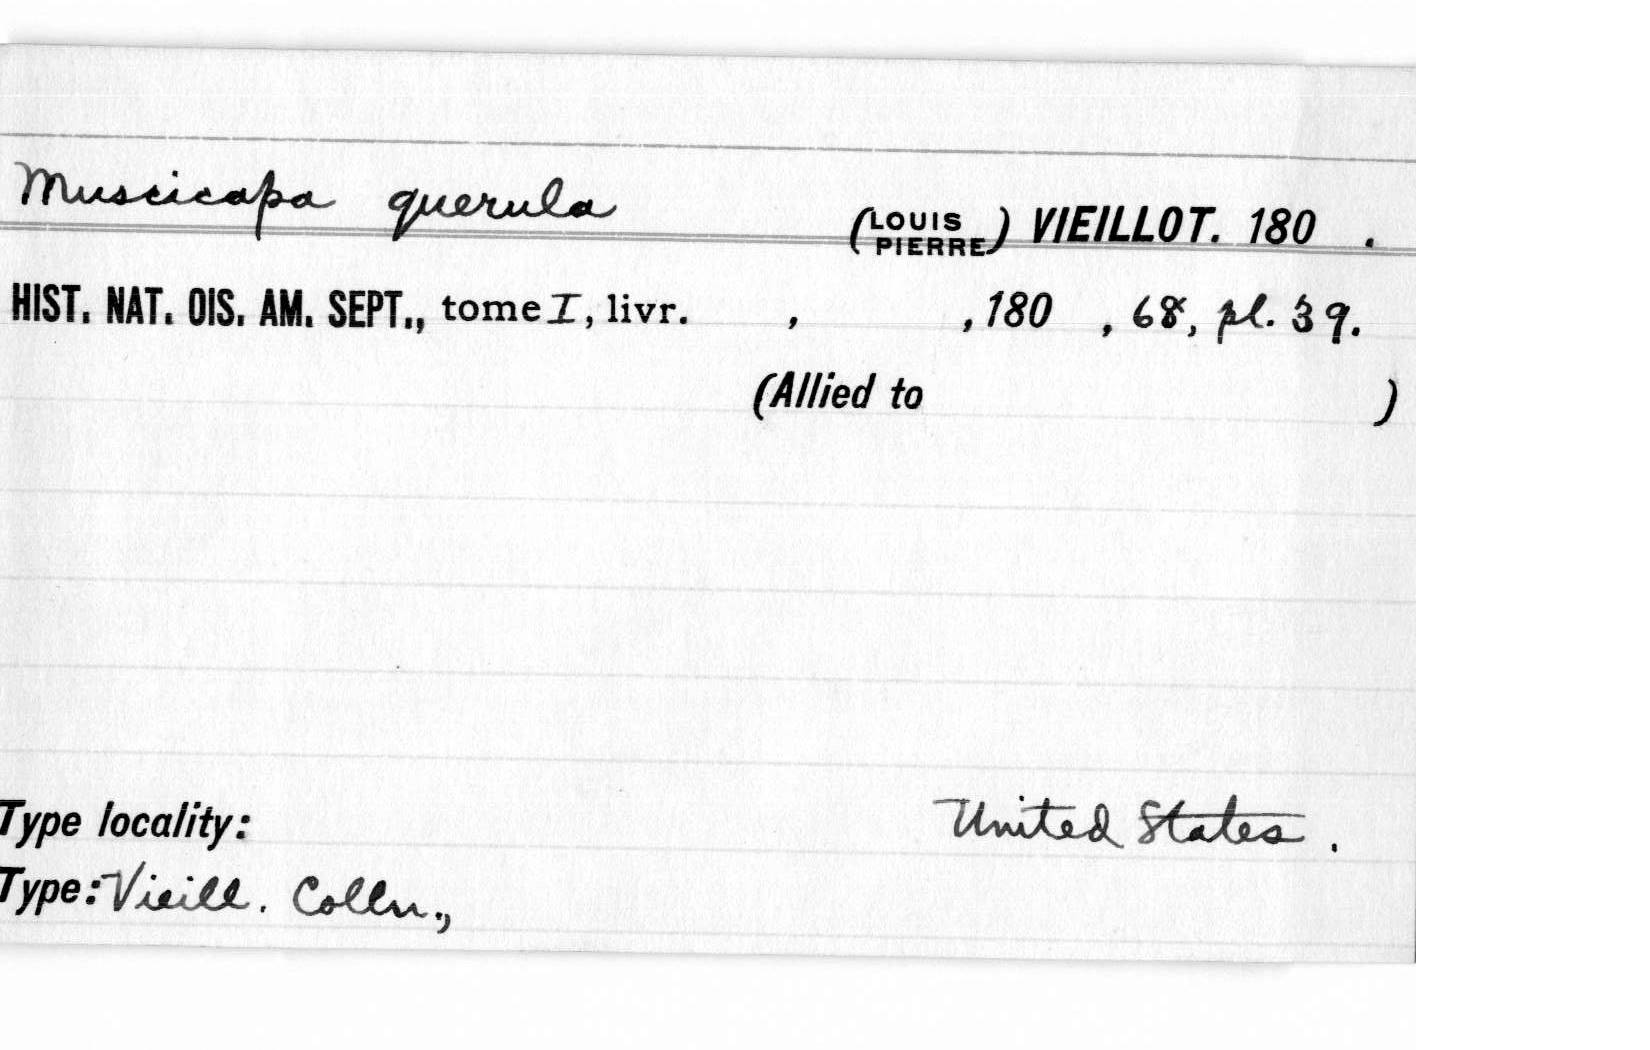 Muscicapa querula (LOUIS PIERRE) VIEILLOT. 180 .
HIST. NAT. OIS. AM. SEPT., tome I, livr. , , 180 , 68, pl. 39.
(Allied to )
Type locality: United States .
Type: Vieill. Colln.,